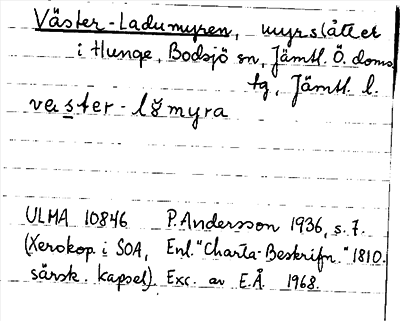 Väster-Ladumyren, myrslåttet
i Hunge, Bodsjö sn, Jämtl. Ö. doms.
tg, Jämtl. l.
vester-lȣmyra
ULMA 10846 P. Andersson 1936, s. 7.
(Xerokop. i SOA, Enl. "Charta-Beskrifn." 1810.
särsk. kapsel). Exc. av E.Å. 1968.